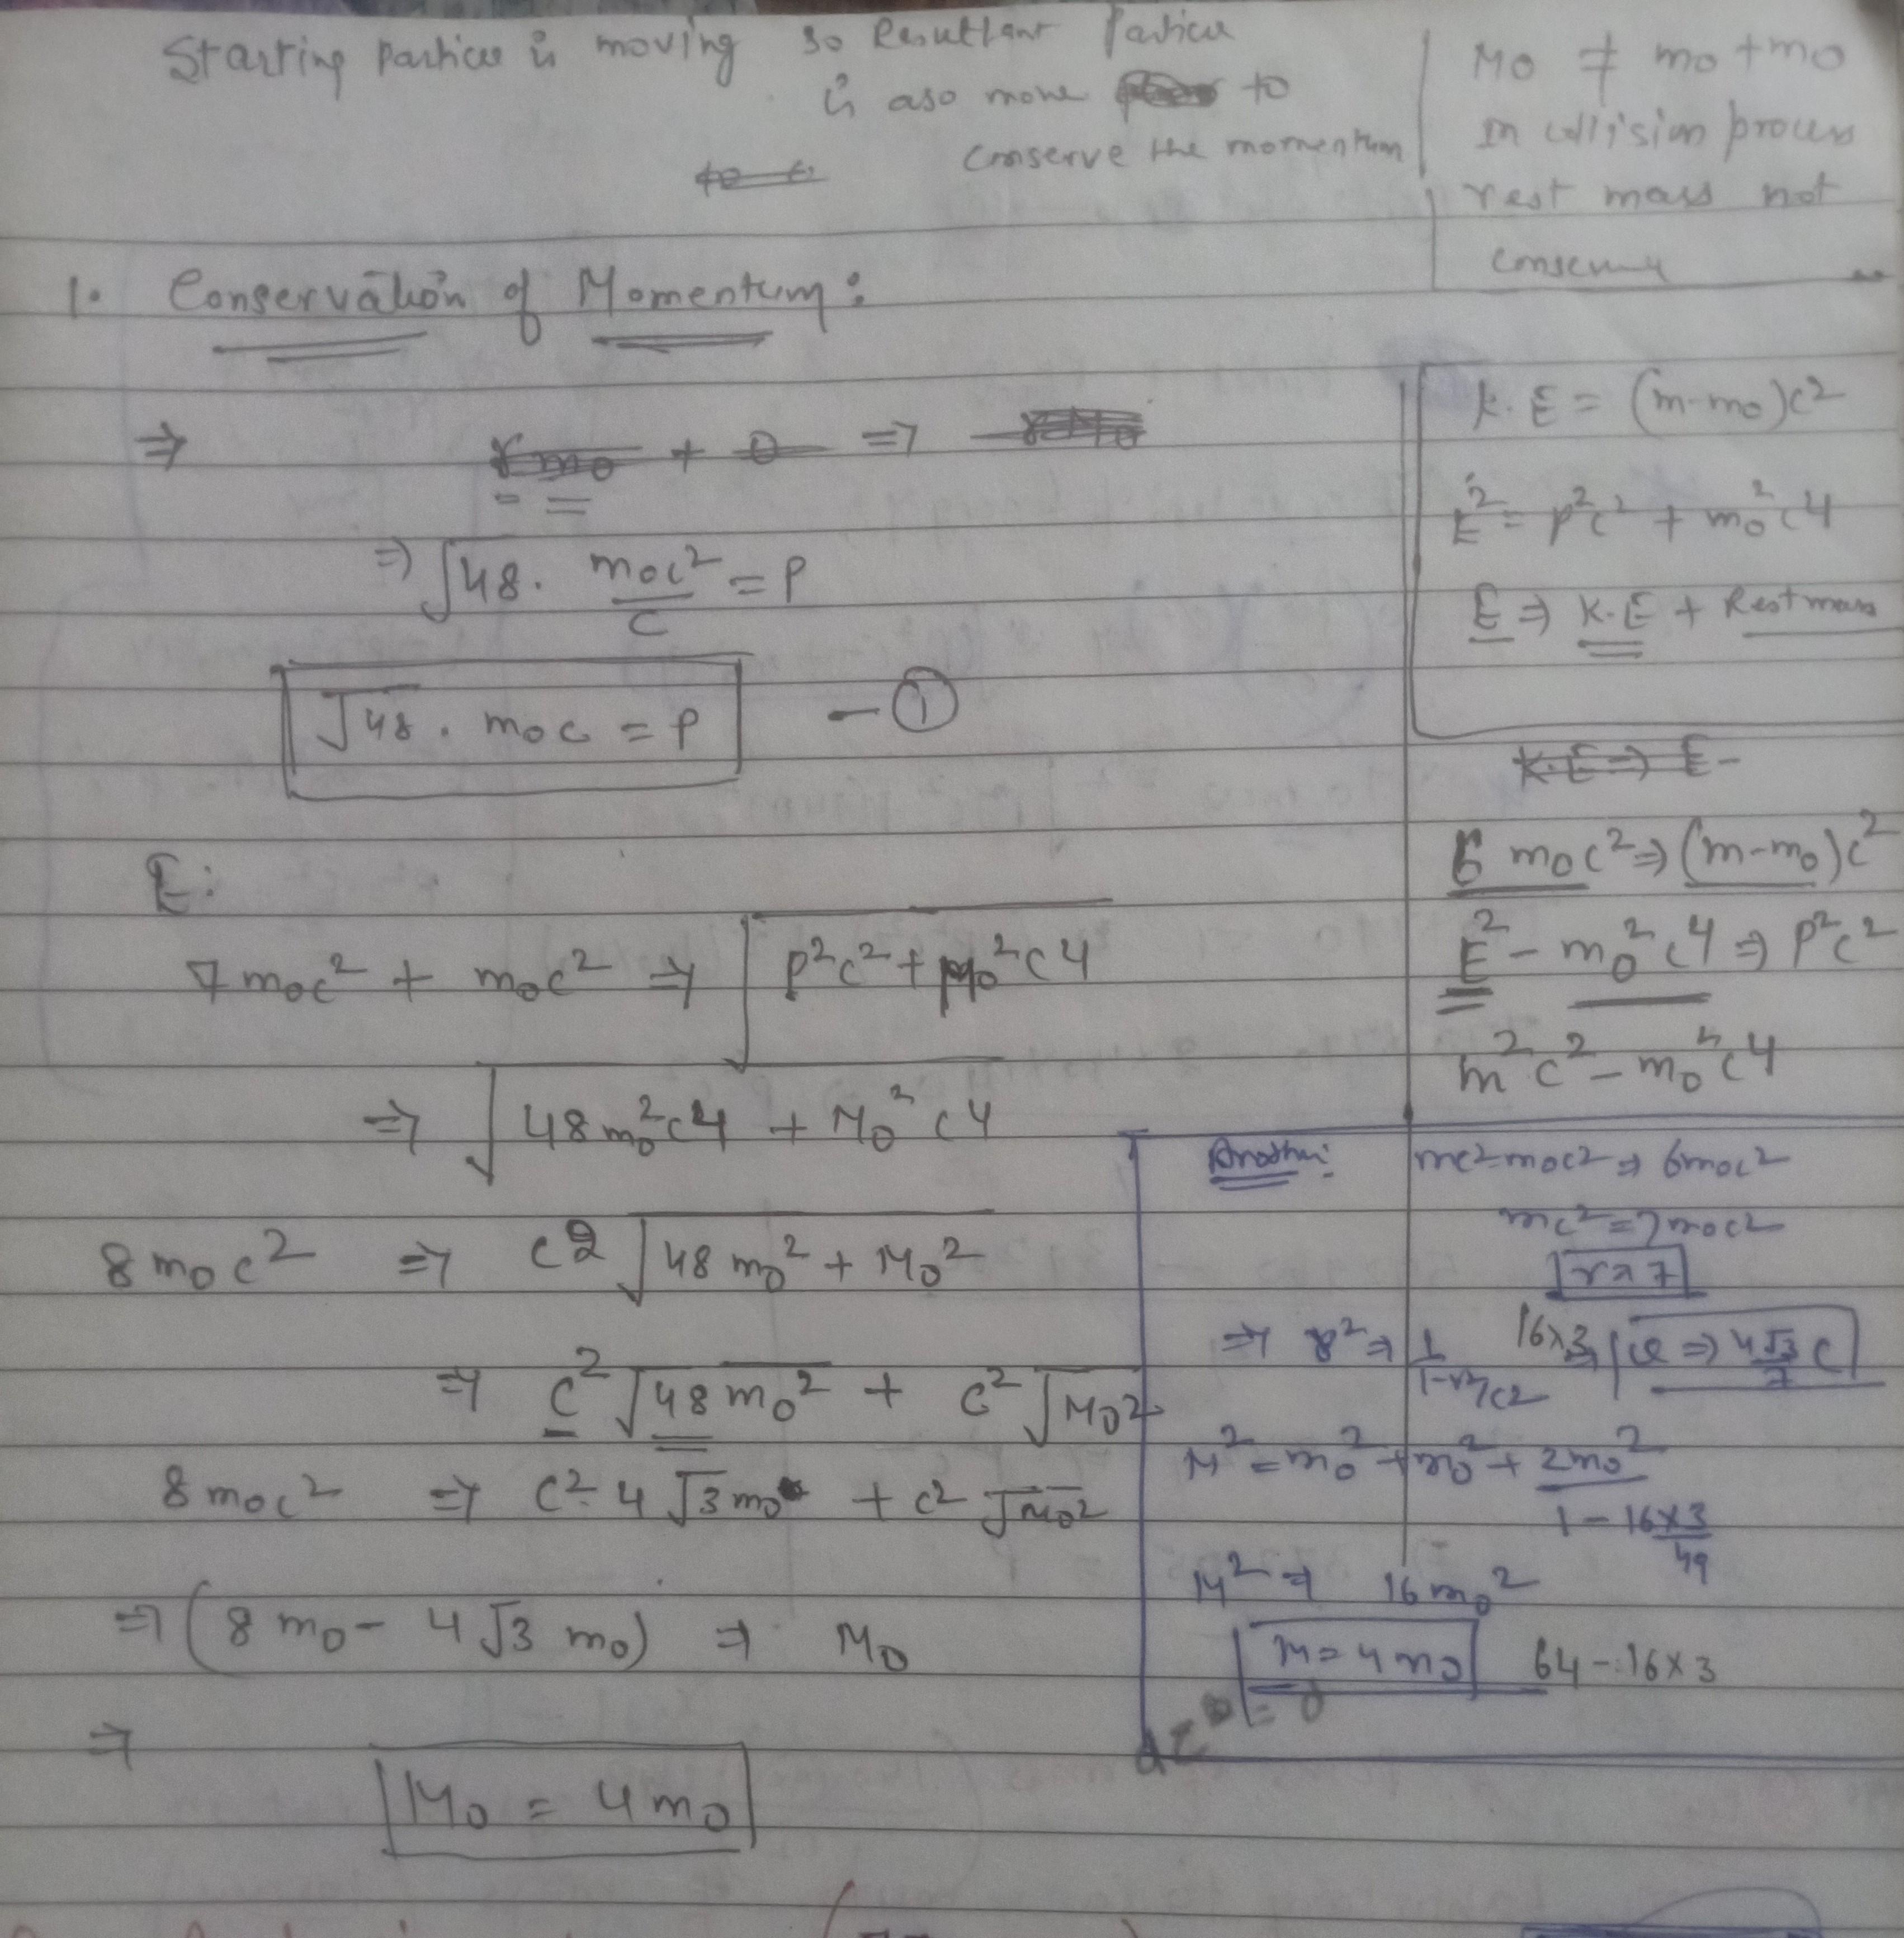 Starting particle is moving so Resultant Particle
is also move to
conserve the momentum
M0 ≠ m0 + m0
in collision process
rest mass not
conserve
1. Conservation of Momentum:
⇒ γm0 + 0 ⇒ γM0
⇒ √48 . m0c²/c = P
√48 . m0c = P — ①
K.E = (m-m0)c²
E² = p²c² + m0²c4
E ⇒ K.E + Rest mass
K.E ⇒ E -
6 m0c² ⇒ (m-m0)c²
E² - m0²c4 ⇒ P²c²
m²c² - m0²c4
E:
7m0c² + m0c² ⇒ √P²c² + M0²c4
⇒ √48m0²c4 + M0²c4
8m0c² ⇒ c2 √48m0² + M0²
⇒ c² √48m0² + c² √M02
8m0c² ⇒ c². 4√3m0 + c² √M02
⇒ (8m0 - 4√3 m0) ⇒ M0
⇒
M0 = 4m0
Another: mc²-m0c² ⇒ 6m0c²
mc² = 7m0c2
γ = 7
⇒ γ² ⇒ 1/1-v²/c2 16×3 ⇒ v ⇒ 4√3/7 C
M² = m0² + m0² + 2m0²
1 - 16×3/49
M² ⇒ 16m0²
M = 4m0 64-16×3
= 0